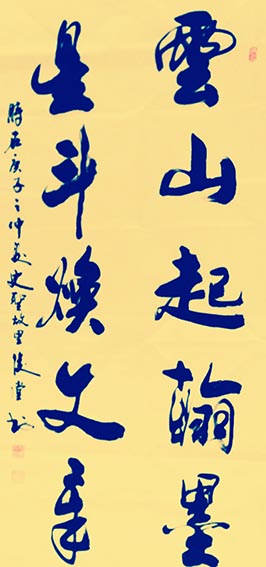 雲山起翰墨
星斗焕文章
時在庚子之仲夏史聖故里